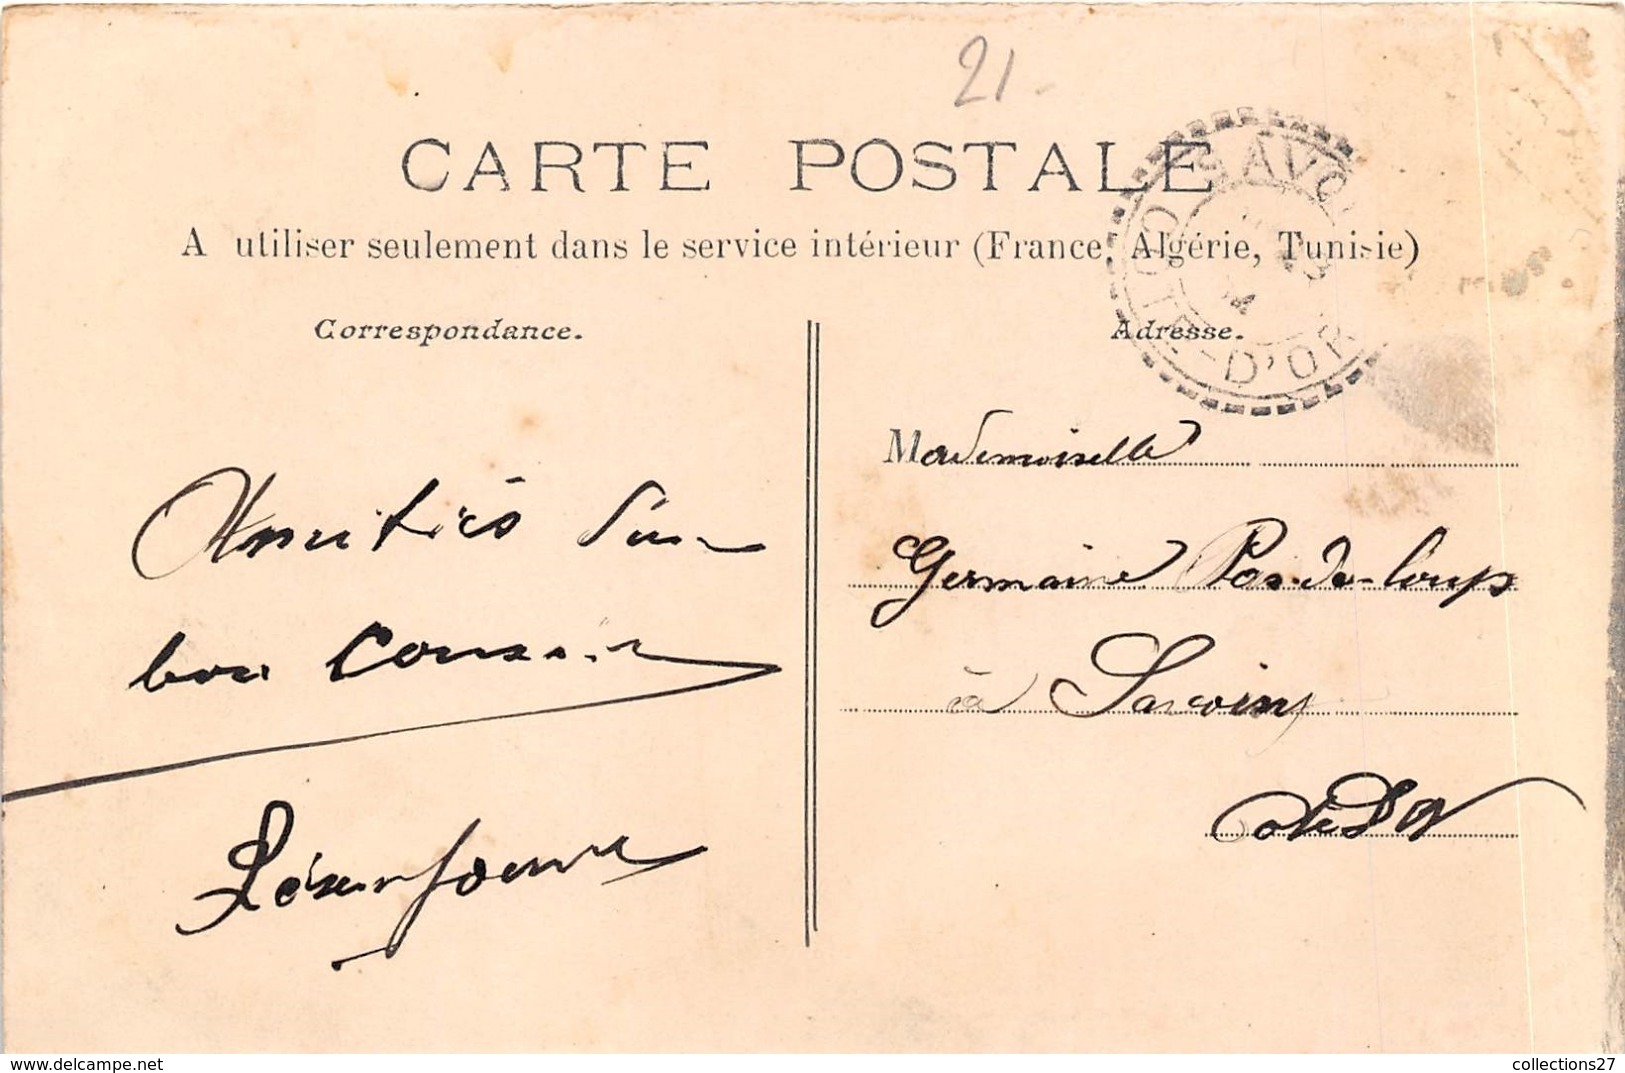 21
CARTE POSTALE
A utiliser seulement dans le service intérieur (France, Algérie, Tunisie)
Correspondance.
Adresse.
CÔTE-D'OR
Amitiés d'un
bon Cousin
Mademoiselle
Germaine Pas-de-loup
à Savoisy
Côte D'Or
www.delcampe.net
collections27